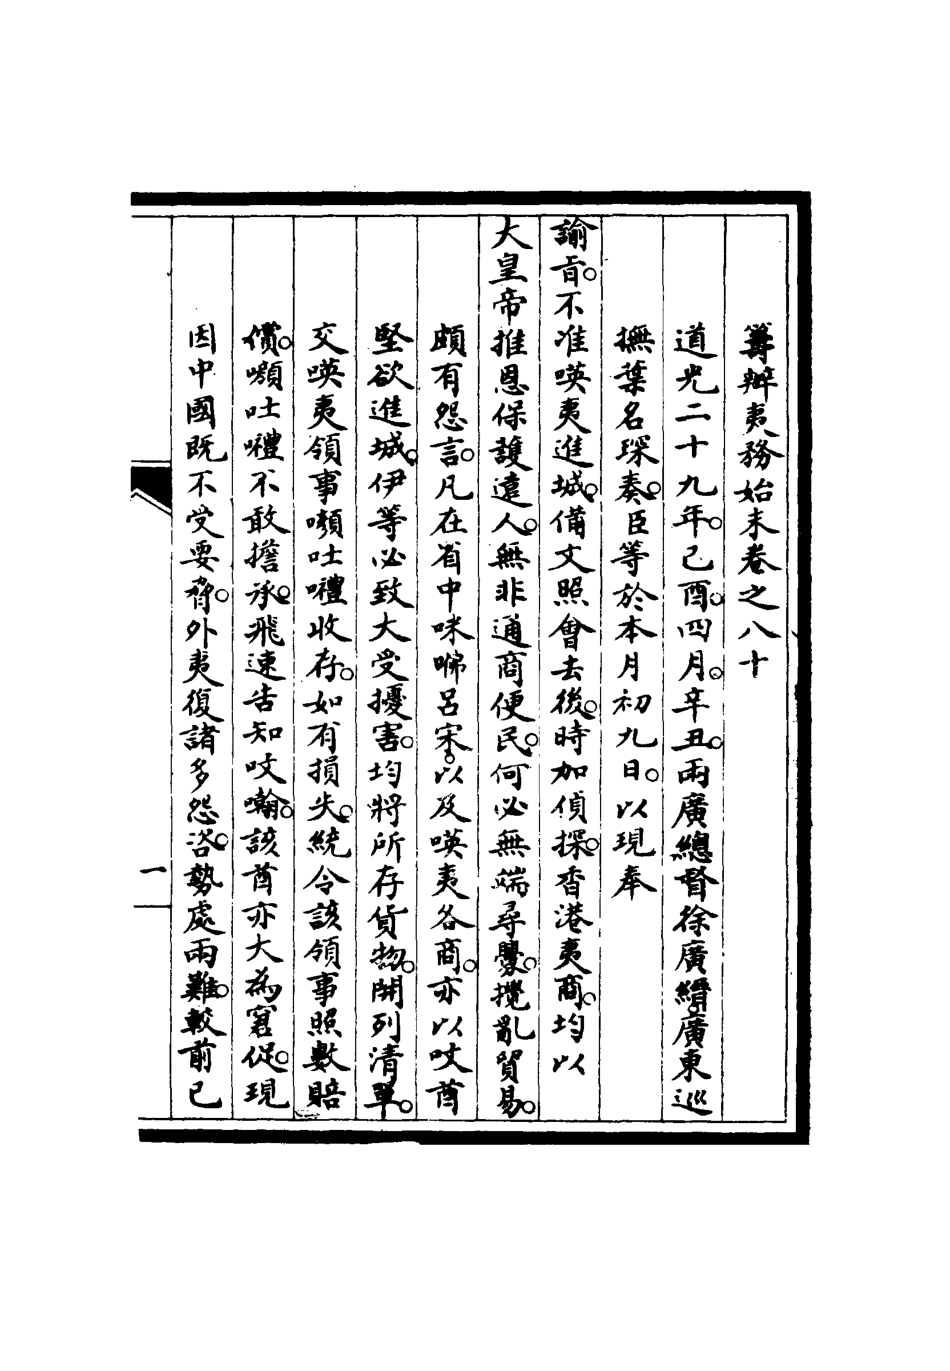 籌辦夷務始末卷之八十
道光二十九年。己酉。四月。辛丑。兩廣總督徐廣縉。廣東巡
撫葉名琛奏。臣等於本月初九日。以現奉
諭旨。不准𠸄夷進城。備文照會去後。時加偵探。香港夷商。均以
大皇帝推恩保護遠人。無非通商便民。何必無端尋釁。攪亂貿易。
頗有怨言。凡在省中咪咈呂宋。以及𠸄夷各商。亦以呅酋
堅欲進城。伊等必致大受擾害。均將所存貨物。開列清單。
交𠸄夷領事嚬吐𠼤收存。如有損失。統令該領事照數賠
償。嚬吐𠼤不敢擔承。飛速告知呅噙。該酋亦大為窘促。現
因中國既不受要脅。外夷復諸多怨咨。勢處兩難。較前已
一